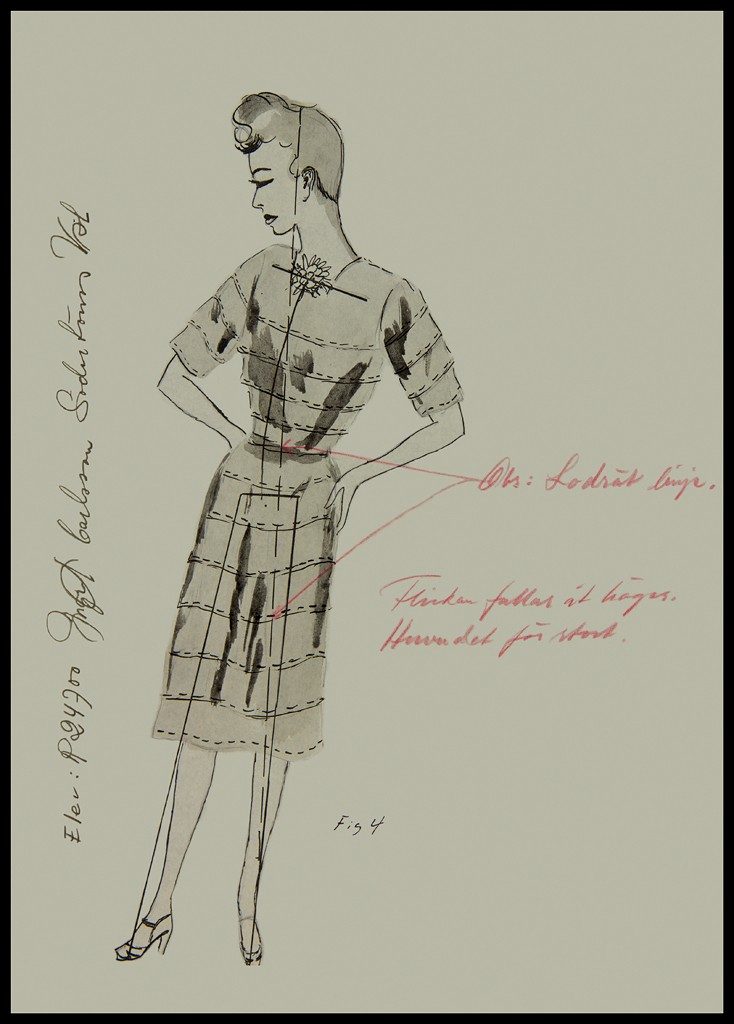 Elev: P24700 Ingrid Carlsson
Obs: Lodrät linje.
Flickan fallar åt höger.
Huvudet för stort.
Fig 4